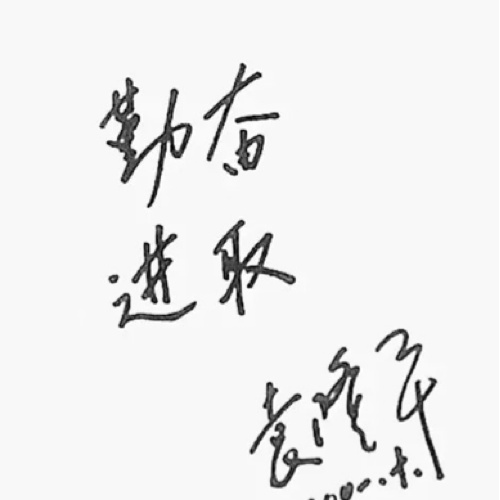 勤奋
进取
袁隆平